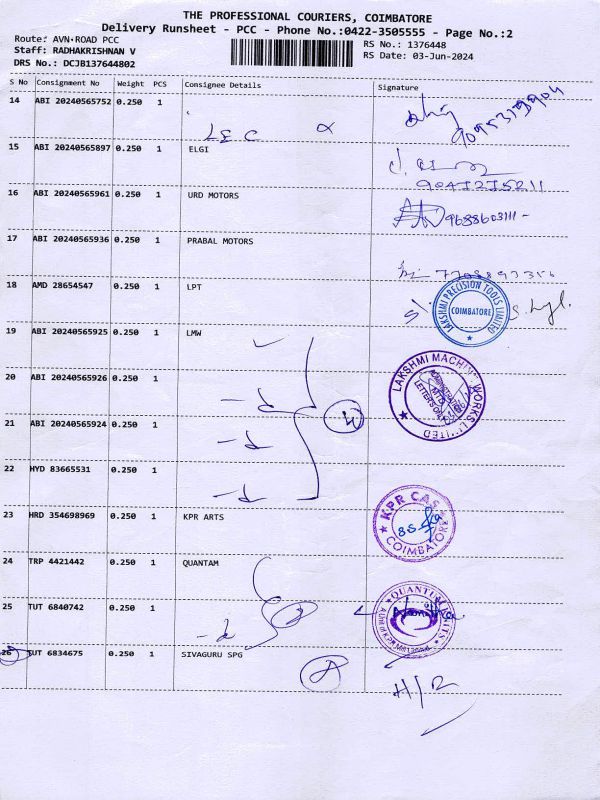 THE PROFESSIONAL COURIERS, COIMBATORE
Delivery Runsheet - PCC - Phone No.:0422-3505555 - Page No.:2
Route: AVN-ROAD PCC
Staff: RADHAKRISHNAN V
DRS No.: DCJB137644802
RS No.: 1376448
RS Date: 03-Jun-2024
S No Consignment No Weight PCS Consignee Details Signature
14 ABI 20240565752 0.250 1
9095379904
15 ABI 20240565897 0.250 1 ELGI
16 ABI 20240565961 0.250 1 URD MOTORS
9688603111-
17 ABI 20240565936 0.250 1 PRABAL MOTORS
18 AMD 28654547 0.250 1 LPT
LAKSHMI PRECISION TOOLS LIMITED
COIMBATORE
19 ABI 20240565925 0.250 1 LMW
LAKSHMI MACHINE WORKS LIMITED
20 ABI 20240565926 0.250 1
21 ABI 20240565924 0.250 1
22 HYD 83665531 0.250 1
23 HRD 354698969 0.250 1 KPR ARTS
KPR CAS
COIMBATORE
24 TRP 4421442 0.250 1 QUANTAM
25 TUT 6840742 0.250 1
26 TUT 6834675 0.250 1 SIVAGURU SPG
H/R